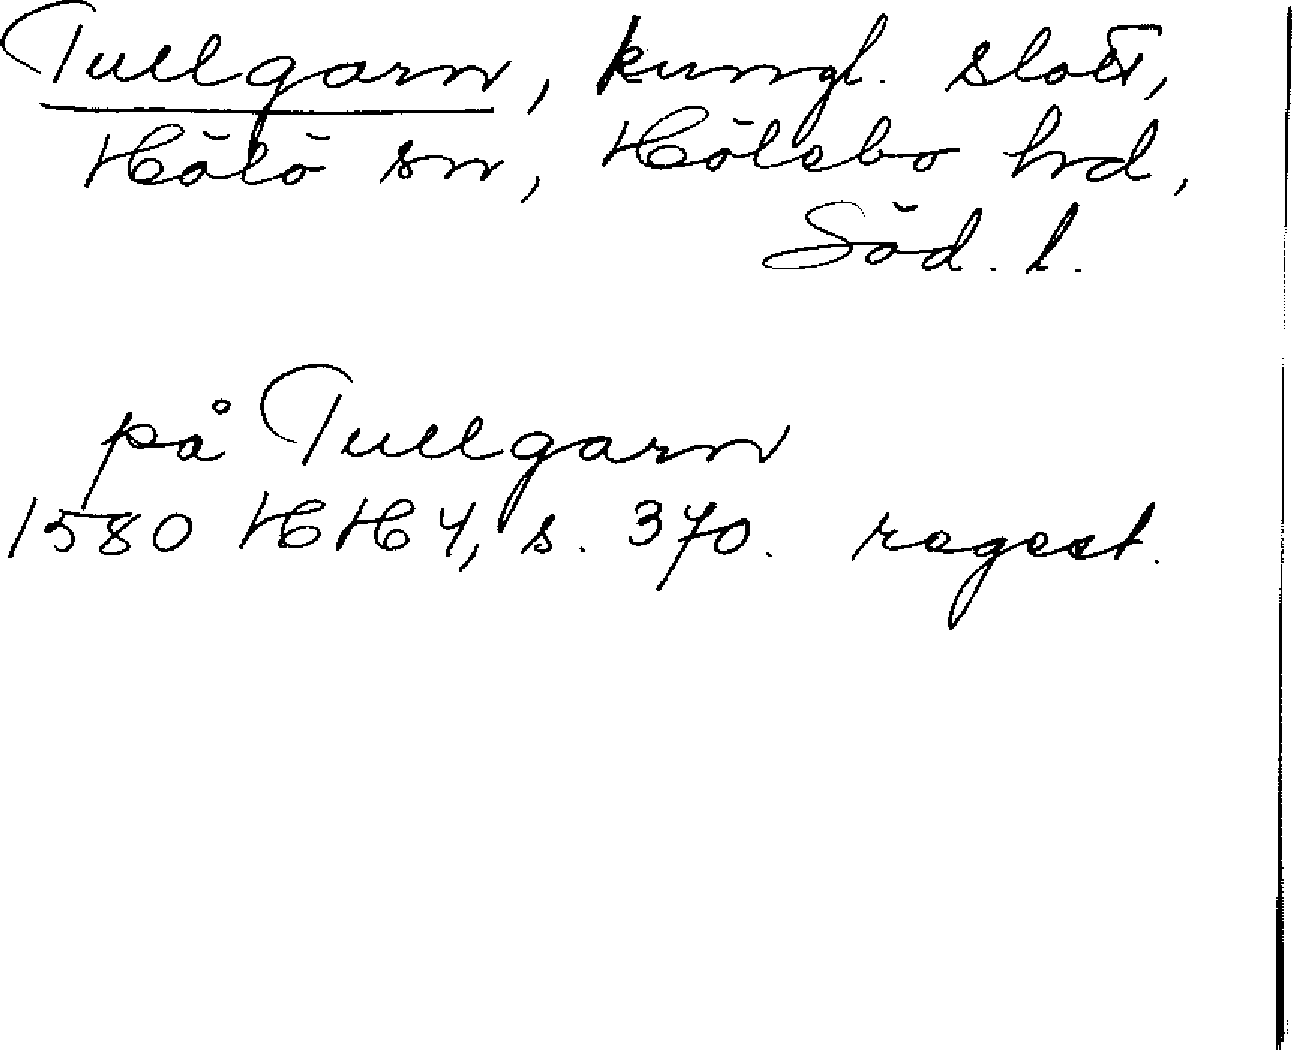 Tullgarn, kungl. slott,
Hölö sn, Hölebo hrd,
Söd. l.
på Tullgarn
1580 HH 4, s. 370. regest.